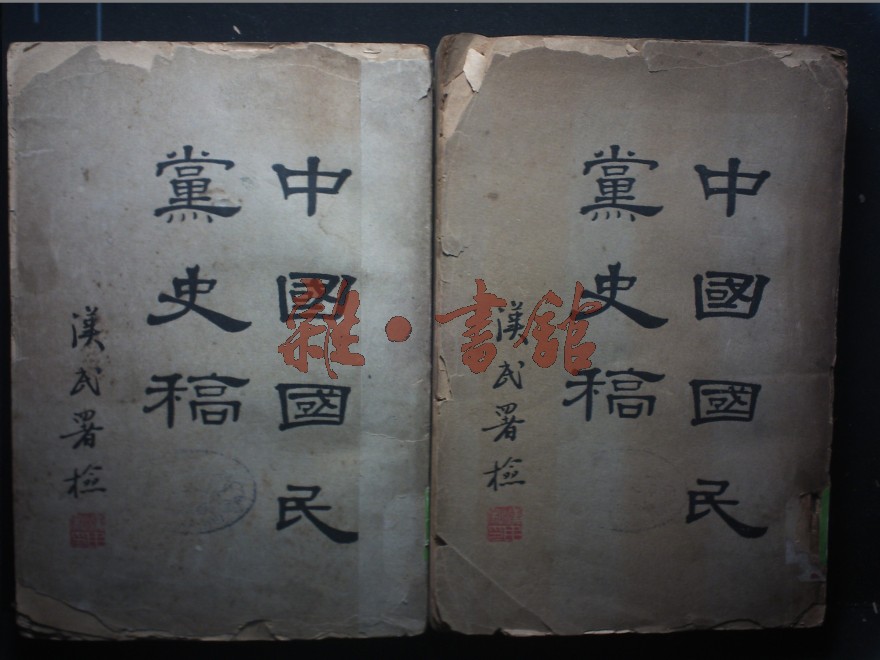 中國國民
黨史稿
漢民署檢
中國國民
黨史稿
漢民署檢
雜·書館